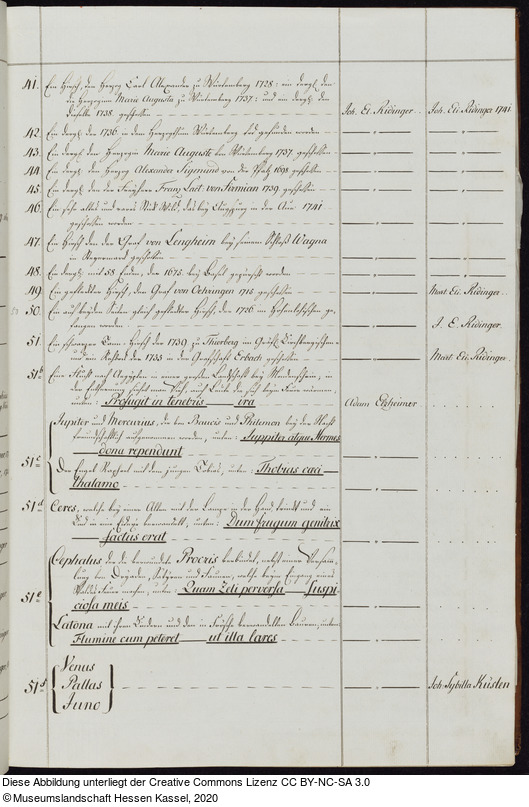 41. Ein Hirsch, den Herzog Carl Alexander zu Würtemberg 1728: ein dergl. den
die Herzoginn Maria Augusta zu Würtemberg 1737: und ein dergl. den
dieselbe 1738. geschossen Joh. El. Ridinger. Joh. El. Ridinger 1741.
42. Ein dergl. der 1736 in dem Herzogthum Würtemberg tod gefunden worden
43. Ein dergl. den Herzogin Maria Augusta von Würtemberg 1737 geschossen
44. Ein dergl. den Herzog Alexander Sigmund von der Pfalz 1698 geschossen
45. Ein dergl. den der Freyherr Franz 1739 geschossen
46. Ein sehr altes und rares Stück Wild, das bey Augspurg in der Au 1741
geschossen worden
47. Ein Hirsch den der Graf von Lengheim bey seinem Schloß Wagna
in geschossen
48. Ein dergl. mit 58 Enden, der 1675 bey worden
49. Ein gefleckter Hirsch, den Graf von Oehringen 1715 geschossen Mart. El. Ridinger.
50. Ein auf beyden Seiten gleich gefleckter Hirsch, der 1736 im ge-
fangen worden J. E. Ridinger.
51. Ein schwarzer Tann-Hirsch der 1739 zu im
und ein 1735 in der Grafschaft Erbach geschossen Mart. El. Ridinger.
51b Eine Flucht nach Egypten in einer Landschaft bey Mondenschein, in
der
unten: Profugit in tenebris — ira Adam Elzheimer
Jupiter und Mercurius, die von Baucis und Philemon bey der Nacht
freundschaftlich aufgenommen werden, unten: Juppiter atque Hermes
— dona rependunt
51c
Der Engel Raphael mit dem jungen Tobias, unten: Thobius caci —
thalamo
51d Ceres, welche bey einer Alten mit der Lampe in der Hand und ein
Kind in eine Eidexe verwandelt, unten: Dum frugum genitrix
— factus erat
Cephalus der die verwundete Procris verbindet, nebst einer Versam-
lung von Dryaden, Satyren und Faunen, welche beym Eingang eines
Waldes Feuer machen, unten: Quam Zeli perversa — suspi
51e ciosa meis
Latona mit ihren Kindern und den in Frösche verwandelten Bauren, unten:
Flumine cum peteret — in illa lares
Venus
51f Pallas Joh. Sybilla Küslen
Juno
Diese Abbildung unterliegt der Creative Commons Lizenz CC BY-NC-SA 3.0
©Museumslandschaft Hessen Kassel, 2020